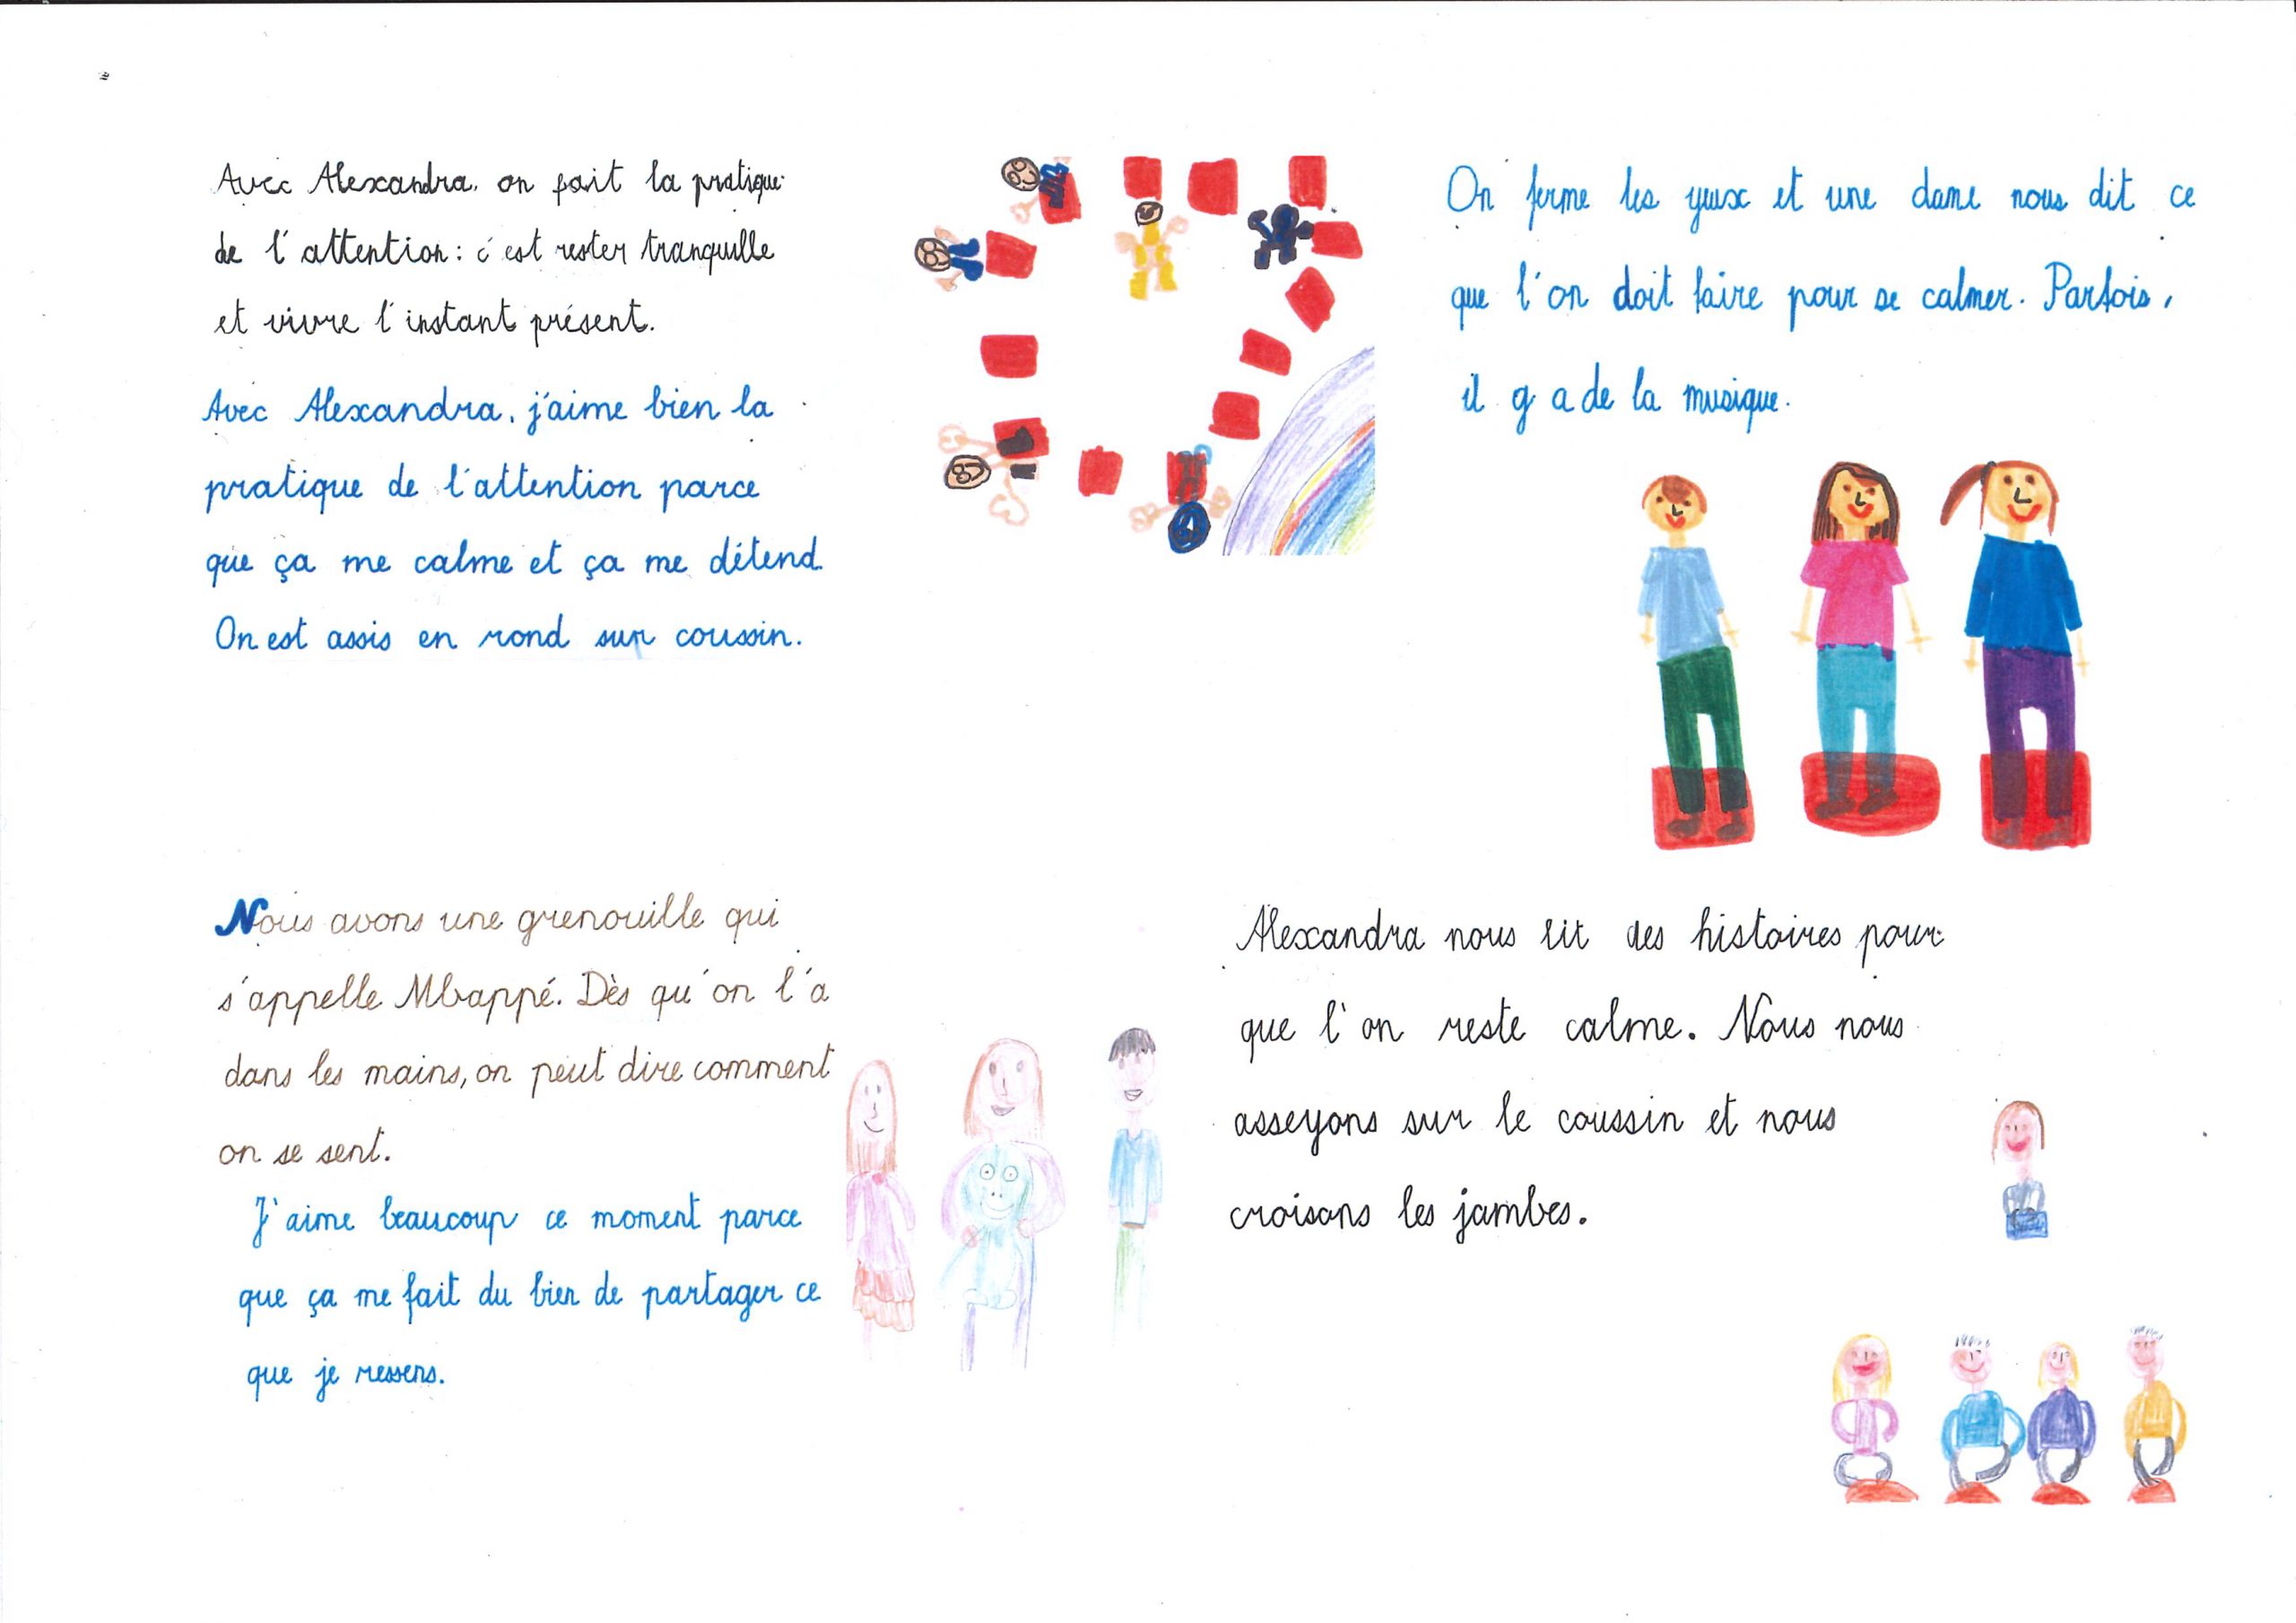 Avec Alexandra, on fait la pratique
de l'attention : c'est rester tranquille
et vivre l'instant présent.
Avec Alexandra, j'aime bien la
pratique de l'attention parce
que ça me calme et ça me détend.
On est assis en rond sur coussin.
On ferme les yeux et une dame nous dit ce
que l'on doit faire pour se calmer. Parfois,
il y a de la musique.
Nous avons une grenouille qui
s'appelle Mbappé. Dès qu'on l'a
dans les mains, on peut dire comment
on se sent.
J'aime beaucoup ce moment parce
que ça me fait du bien de partager ce
que je ressens.
Alexandra nous lit des histoires pour
que l'on reste calme. Nous nous
asseyons sur le coussin et nous
croisons les jambes.